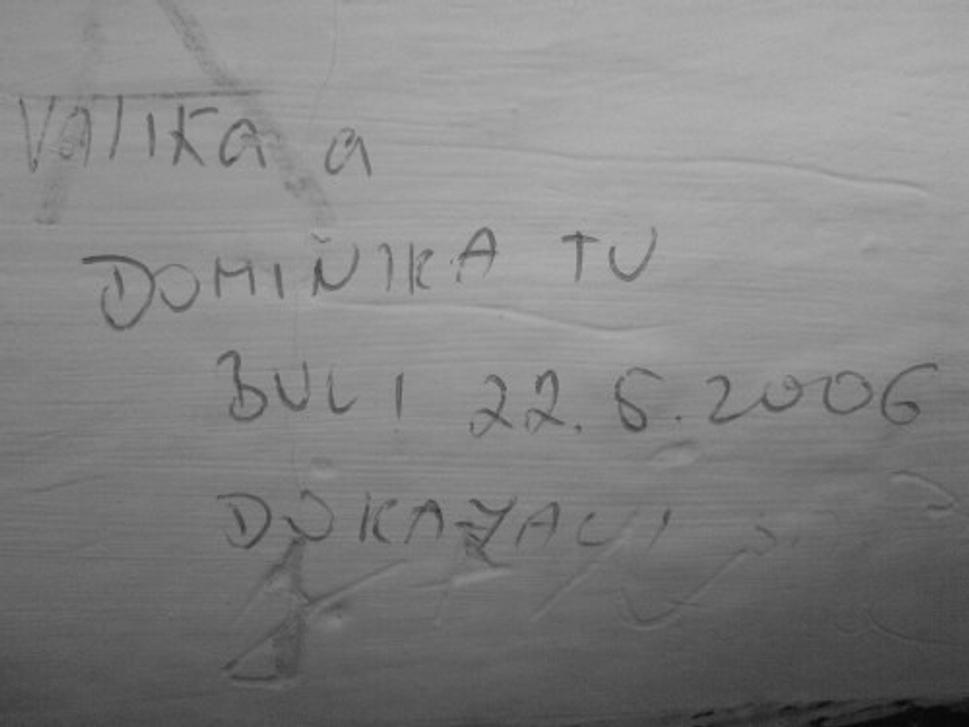 VAlIKA a
DOMIŇIKA TU
BULI 22.6.2006
DOKAZALI